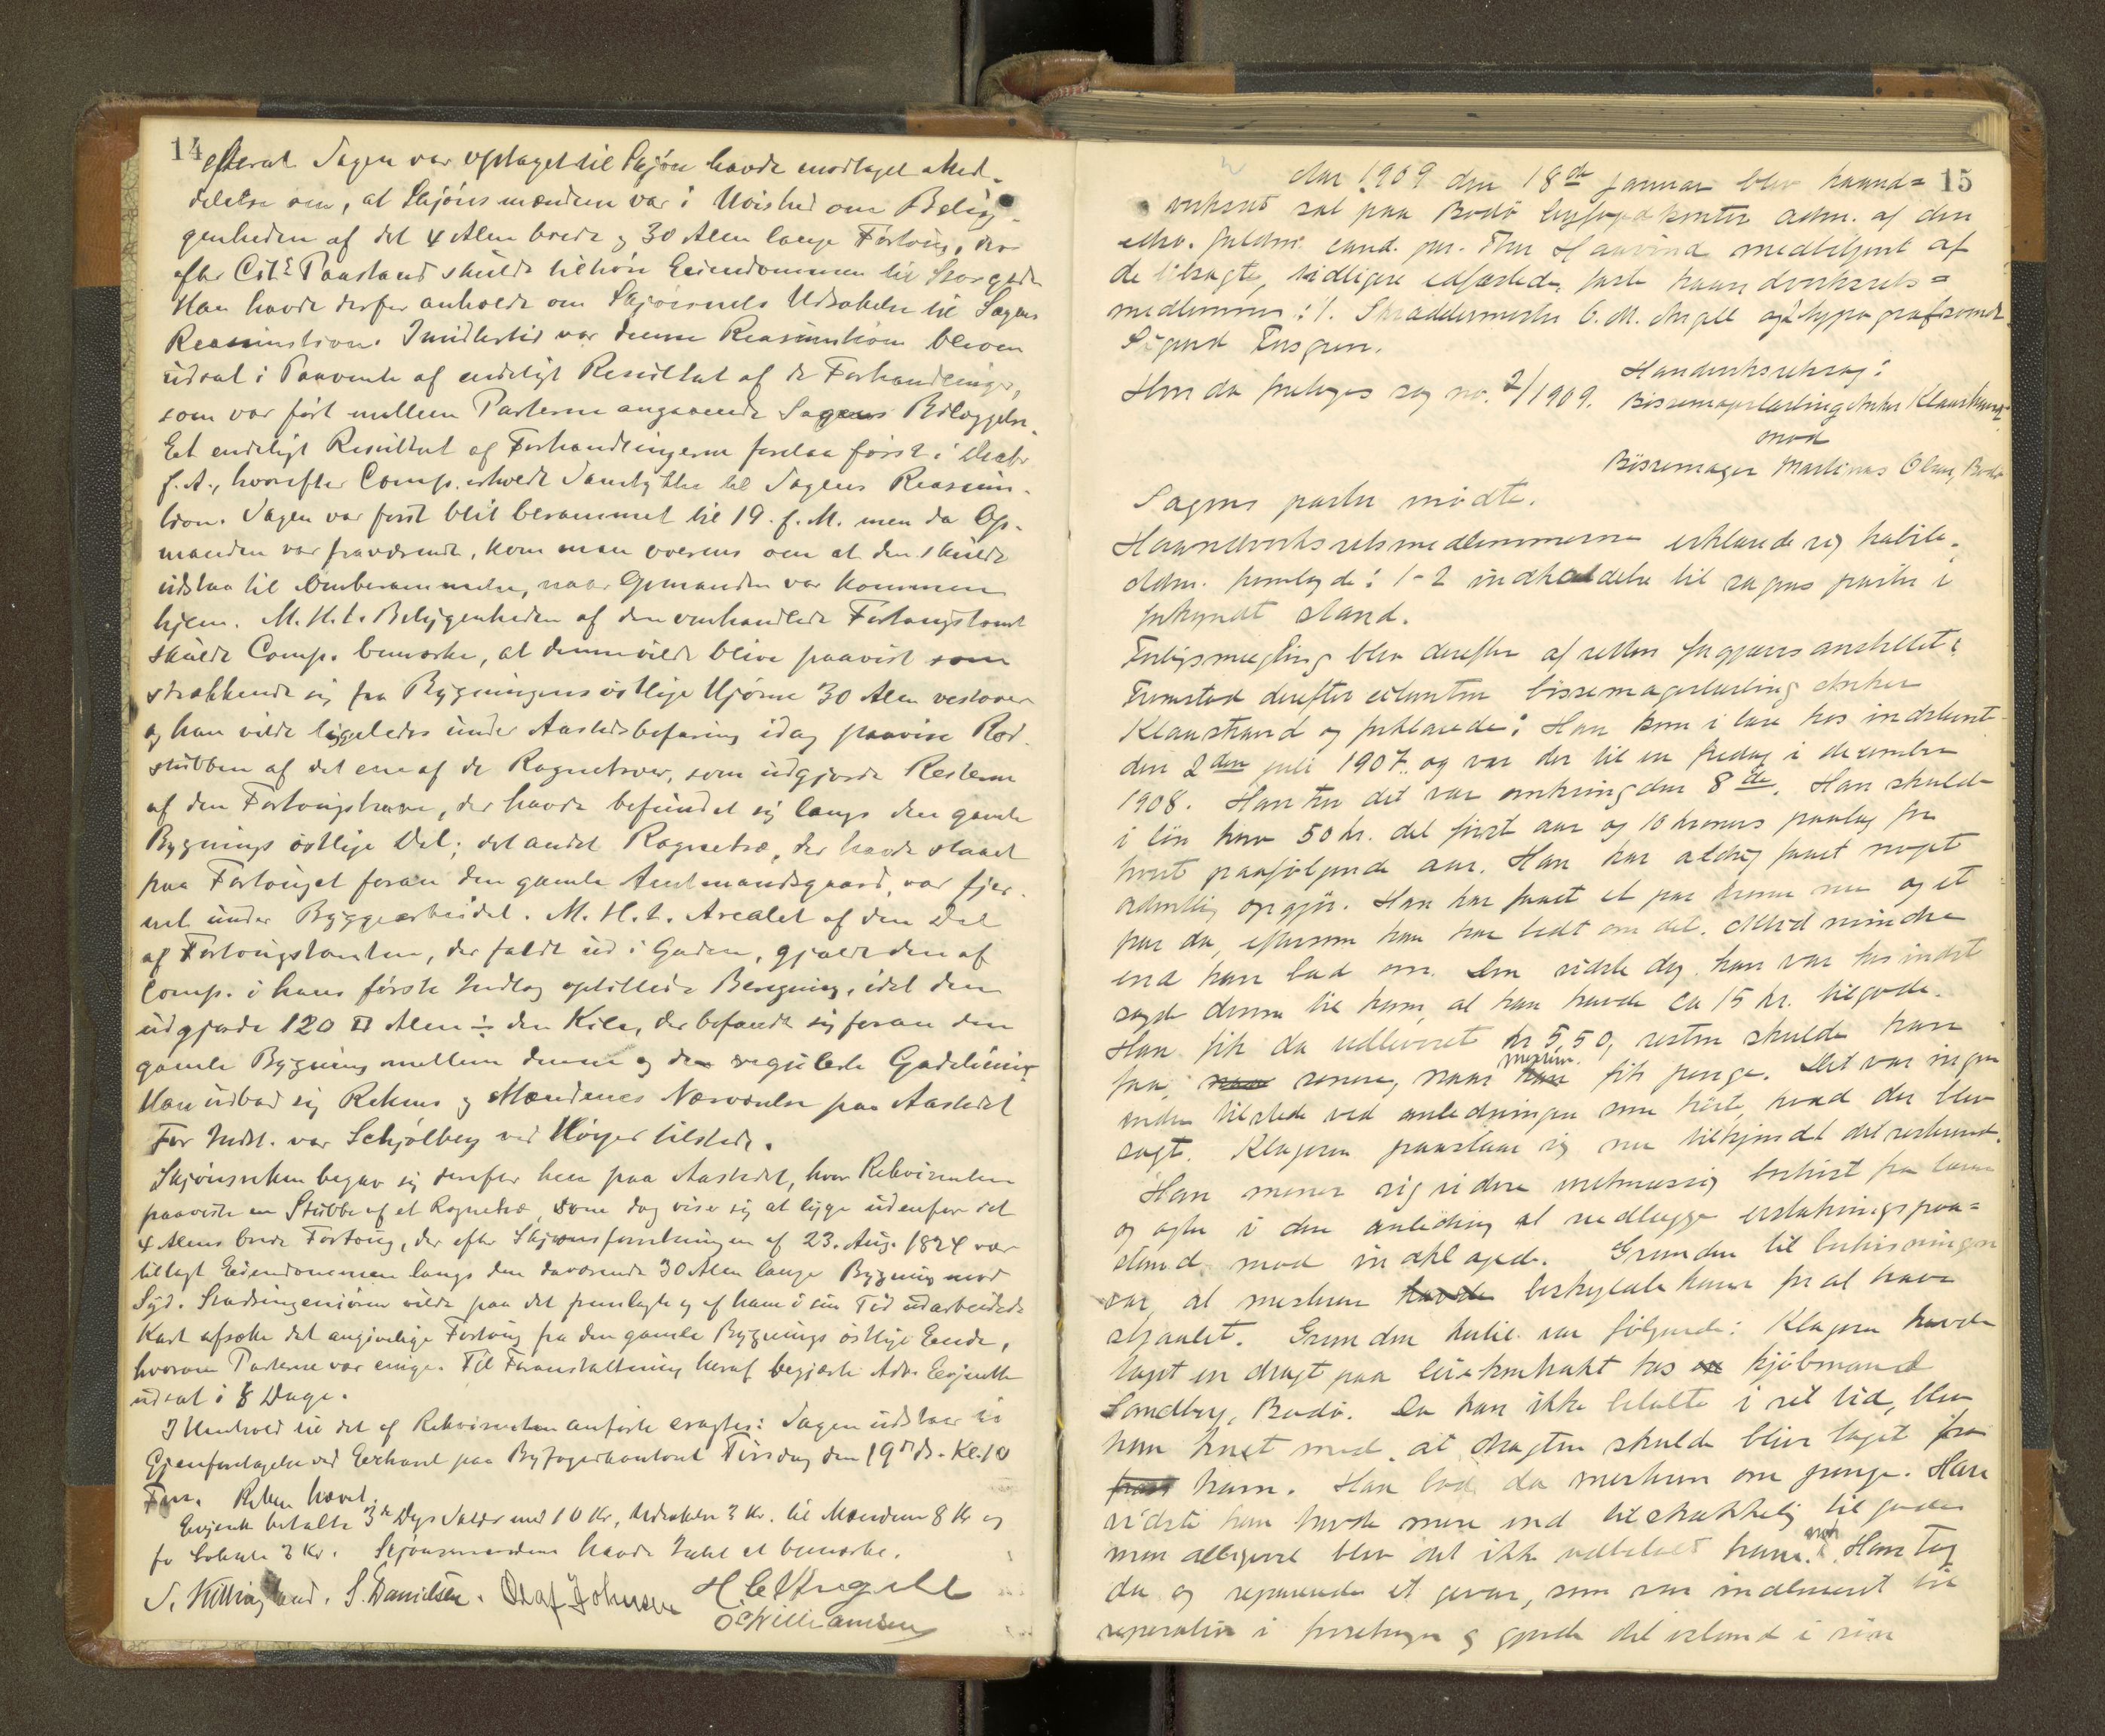 14
efterat Sagen var optaget til Skjøn havde modtaget Med-
delelse om, at Skjønsmændene var i Uvished om Belig-
genheden af det 4 Alen brede og 30 Alen lange Fortoug, der
efter Cit.s Paastand skulde tilhøre Eiendommen til Storgaden
Han havde derfor anholdt om Skjønnets Udsættelse til Sagens
Reassumtion. Imidlertid var denne Reassumtion bleven
udsat i Paavente af endeligt Resultat af de Forhandlinger,
som var ført mellem Parterne angaaende Sagens Bilæggelse.
Et endeligt Resultat af Forhandlingerne forelaa først i
f. A., hvorefter Comp. erholdt Samtykke til Sagens Reassum-
tion. Sagen var først blit berammet til 19. f. M. men da Op-
manden var fraværende, kom man overens om at den skulde
udstaa til Omberammelse, naar Opmanden var kommen
hjem. M. H. t. Beliggenheden af den omhandlede Fortougstomt
skulde Comp. bemærke, at denne vilde blive paavist som
strækkende sig fra Bygningens østlige Hjørne 30 Alen vestover
og han vilde ligeledes under Aastedsbefaring idag paavise Rod-
stubben af det ene af de Rognetræer, som udgjorde Resterne
af den Fortougshave, der havde befundet sig langs den gamle
Bygnings østlige Del; det andet Rognetræ, der havde staaet
paa Fortouget foran den gamle Amtmandsgaard, var fjer-
net under Byggearbeidet. M. H. t. Arealet af den Del
af Fortougstomten, der faldt ud i Gaden, gjaldt den af
Comp. i hans første Indlæg opstillede Beregning, idet den
udgjorde 120 □ Alen ÷ den Kile, der befandt sig foran den
gamle Bygning mellem denne og den regulerte Gadelinie.
Han udbad sig Rettens og Mændenes Nærværelse paa Aastedet
For Indst. var Schjølberg ved Høyer tilstede.
Skjønsretten begav sig derefter hen paa Aastedet, hvor Rekvirenten
paaviste en Stubbe af et Rognetræ, som dog viser sig at ligge udenfor det
4 Alens brede Fortoug, der efter Skjønsforretningen af 23. Aug. 1824 var
tillagt Eiendommen langs den daværende 30 Alen lange Bygning mod
Syd. Stadsingeniøren vilde paa det fremlagte og af ham i sin Tid udarbeidede
Kart afsætte det angivelige Fortoug fra den gamle Bygnings østlige Ende,
hvorom Parterne var enige. Til Foranstaltning heraf begjærte Adv. Evjenth
udsat i 8 Dage.
I Henhold til det af Rekvirenten anførte eragtes: Sagen udstaar til
Gjenforetagelse ved Extraret paa Byfogedkontoret Tirsdag den 19de ds. Kl. 10
Form. Retten hævet.
Evjenth betalte 3de Dags Salær med 10 Kr, Udsættelse 3 Kr. til Mændene 8 Kr og
for Lokale 2 Kr. Skjønsmændene havde Intet at bemærke.
S. Killingland. S. Danielsen. Olaf Johnsen H. C. Angell
O. Williamsen
15
Aar 1909 den 18de januar blev haand=
verksret sat paa Bodø byfogedkontor adm. af den
edsv. fuldm. cand. jur. Thor Haavind medbetjent af
de tilsagte, tidligere edfæstede, faste haandverksrets=
medlemmer: 1. Skræddermester C. M. Angell og 2. typograf
Sigurd Ensgren.
Hvor da foretages sag no. 2/1909.
Handverksretssag:
Bøssemagerlærling Anker Klaustrand
mod
Bøssemager Martinus Olsen, Bodø
Sagens parter mødte.
Haandverksretsmedlemmerne erklærede sig habile.
Adm. fremlagde: 1-2 indkaldelse til sagens parter i
forkyndt stand.
Forligsmægling blev derefter af retten forgjæves anstillet;
Fremstod derefter citanten bøssemagerlærling Anker
Klaustrand og forklarede: Han kom i lære hos indstevnt
den 2den juli 1907 og var der til en fredag i dezember
1908. Han tror det var omkring den 8de. Han skulde
i løn have 50 kr. det først aar og 10 kroners paalæg for
hvert paafølgende aar. Han har aldrig faaet noget
ordentlig opgjør. Han har faaet et par kroner nu og et
par da, eftersom han har bedt om det. Altid mindre
end han bad om. Den sidste dag han var hos indst.
sagde denne til ham, at han havde ca 15 kr. tilgode.
Han fik da udleveret kr 5,50, resten skulde han
faa senere, naar mesteren fik penge. Det var ingen
anden tilstede ved anledningen som hørte, hvad der blev
sagt. Klageren paastaar sig nu tilkjendt det resterende.
Han mener sig videre uretmæssig bortvist fra læren
og agter i den anledning at nedlægge erstatningspaa=
stand mod indklagede. Grunden til bortvisningen
var, at mesteren beskyldte ham for at have
stjaalet. Grunden hertil var følgende: Klageren havde
taget en dragt paa leiekontrakt hos kjøbmand
Sandberg, Bodø. Da han ikke betalte i ret tid, blev
han truet med at dragten skulde blive taget fra
ham. Han bad da mesteren om penge. Han
vidste han havde mere end tilstrækkelig tilgode
men alligevel blev det ikke udbetalt ham. Han tog
da og reparerede et gevær, som var indleveret til
reparation i forretningen og gjorde det istand i sin